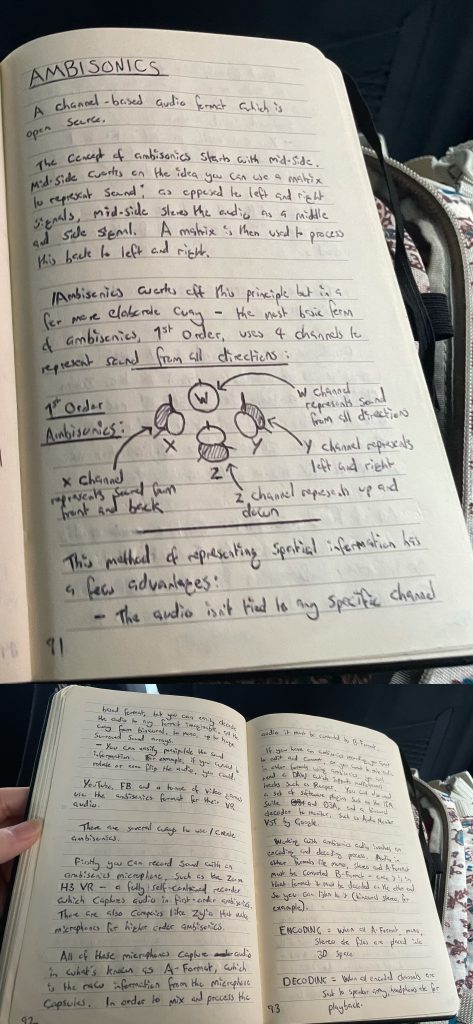 AMBISONICS
A channel-based audio format which is
open source.
The concept of ambisonics starts with mid-side.
Mid-side works on the idea you can use a matrix
to represent sound; as opposed to left and right
signals, mid-side stores the audio as a middle
and side signal. A matrix is then used to process
this back to left and right.
Ambisonics works off this principle but in a
far more elaborate way - the most basic form
of ambisonics, 1st Order, uses 4 channels to
represent sound from all directions:
1st Order
Ambisonics:
W
X
Y
Z
W channel
represents sound
from all direction
Y channel represents
left and right
X channel
represents sound from
front and back
Z channel represents up and
down
This method of representing spatial information has
a few advantages:
- The audio isn't tied to any specific channel
91
based format, but you can easily decode
the audio to any format imaginable,
away from binaural, to mono, up to large
surround sound arrays.
- You can easily manipulate the sound
information. For example, if you wanted to
rotate or even flip the audio, you could.
YouTube, FB and a tonne of video games
use the ambisonics format for their VR
audio.
There are several ways to use / create
ambisonics.
Firstly you can record sound with an
ambisonics microphone, such as the Zoom
H3 VR - a fully self-contained recorder
which captures audio in first-order ambisonics.
There are also companies like Zylia that make
microphones for higher order ambisonics.
All of these microphones capture audio
in what's known as A-Format, which
is the raw information from the microphone
capsules. In order to mix and process the
92
audio it must be converted to B-Format.
If you have an ambisonics recording you want
to edit and convert, or you want to mix
in other formats using ambisonics,
need a DAW which supports multichannel
tracks such as Reaper. You can also
a set of software plugins such as the IEM
suite and a
decoder to monitor, such as Audio Router
VST by Google.
Working with ambisonics audio involves an
encoding and decoding process. Audio in
other formats like mono, stereo and A-Format
must be converted B-Format & once it's in
that format it must be decoded on the other end
so you can listen to it (binaural stereo, for
example).
ENCODING = When all A-Format, mono,
stereo etc files are placed into
3D space
DECODING = When all encoded channels are
sent to speaker array, headphones etc for
playback.
93